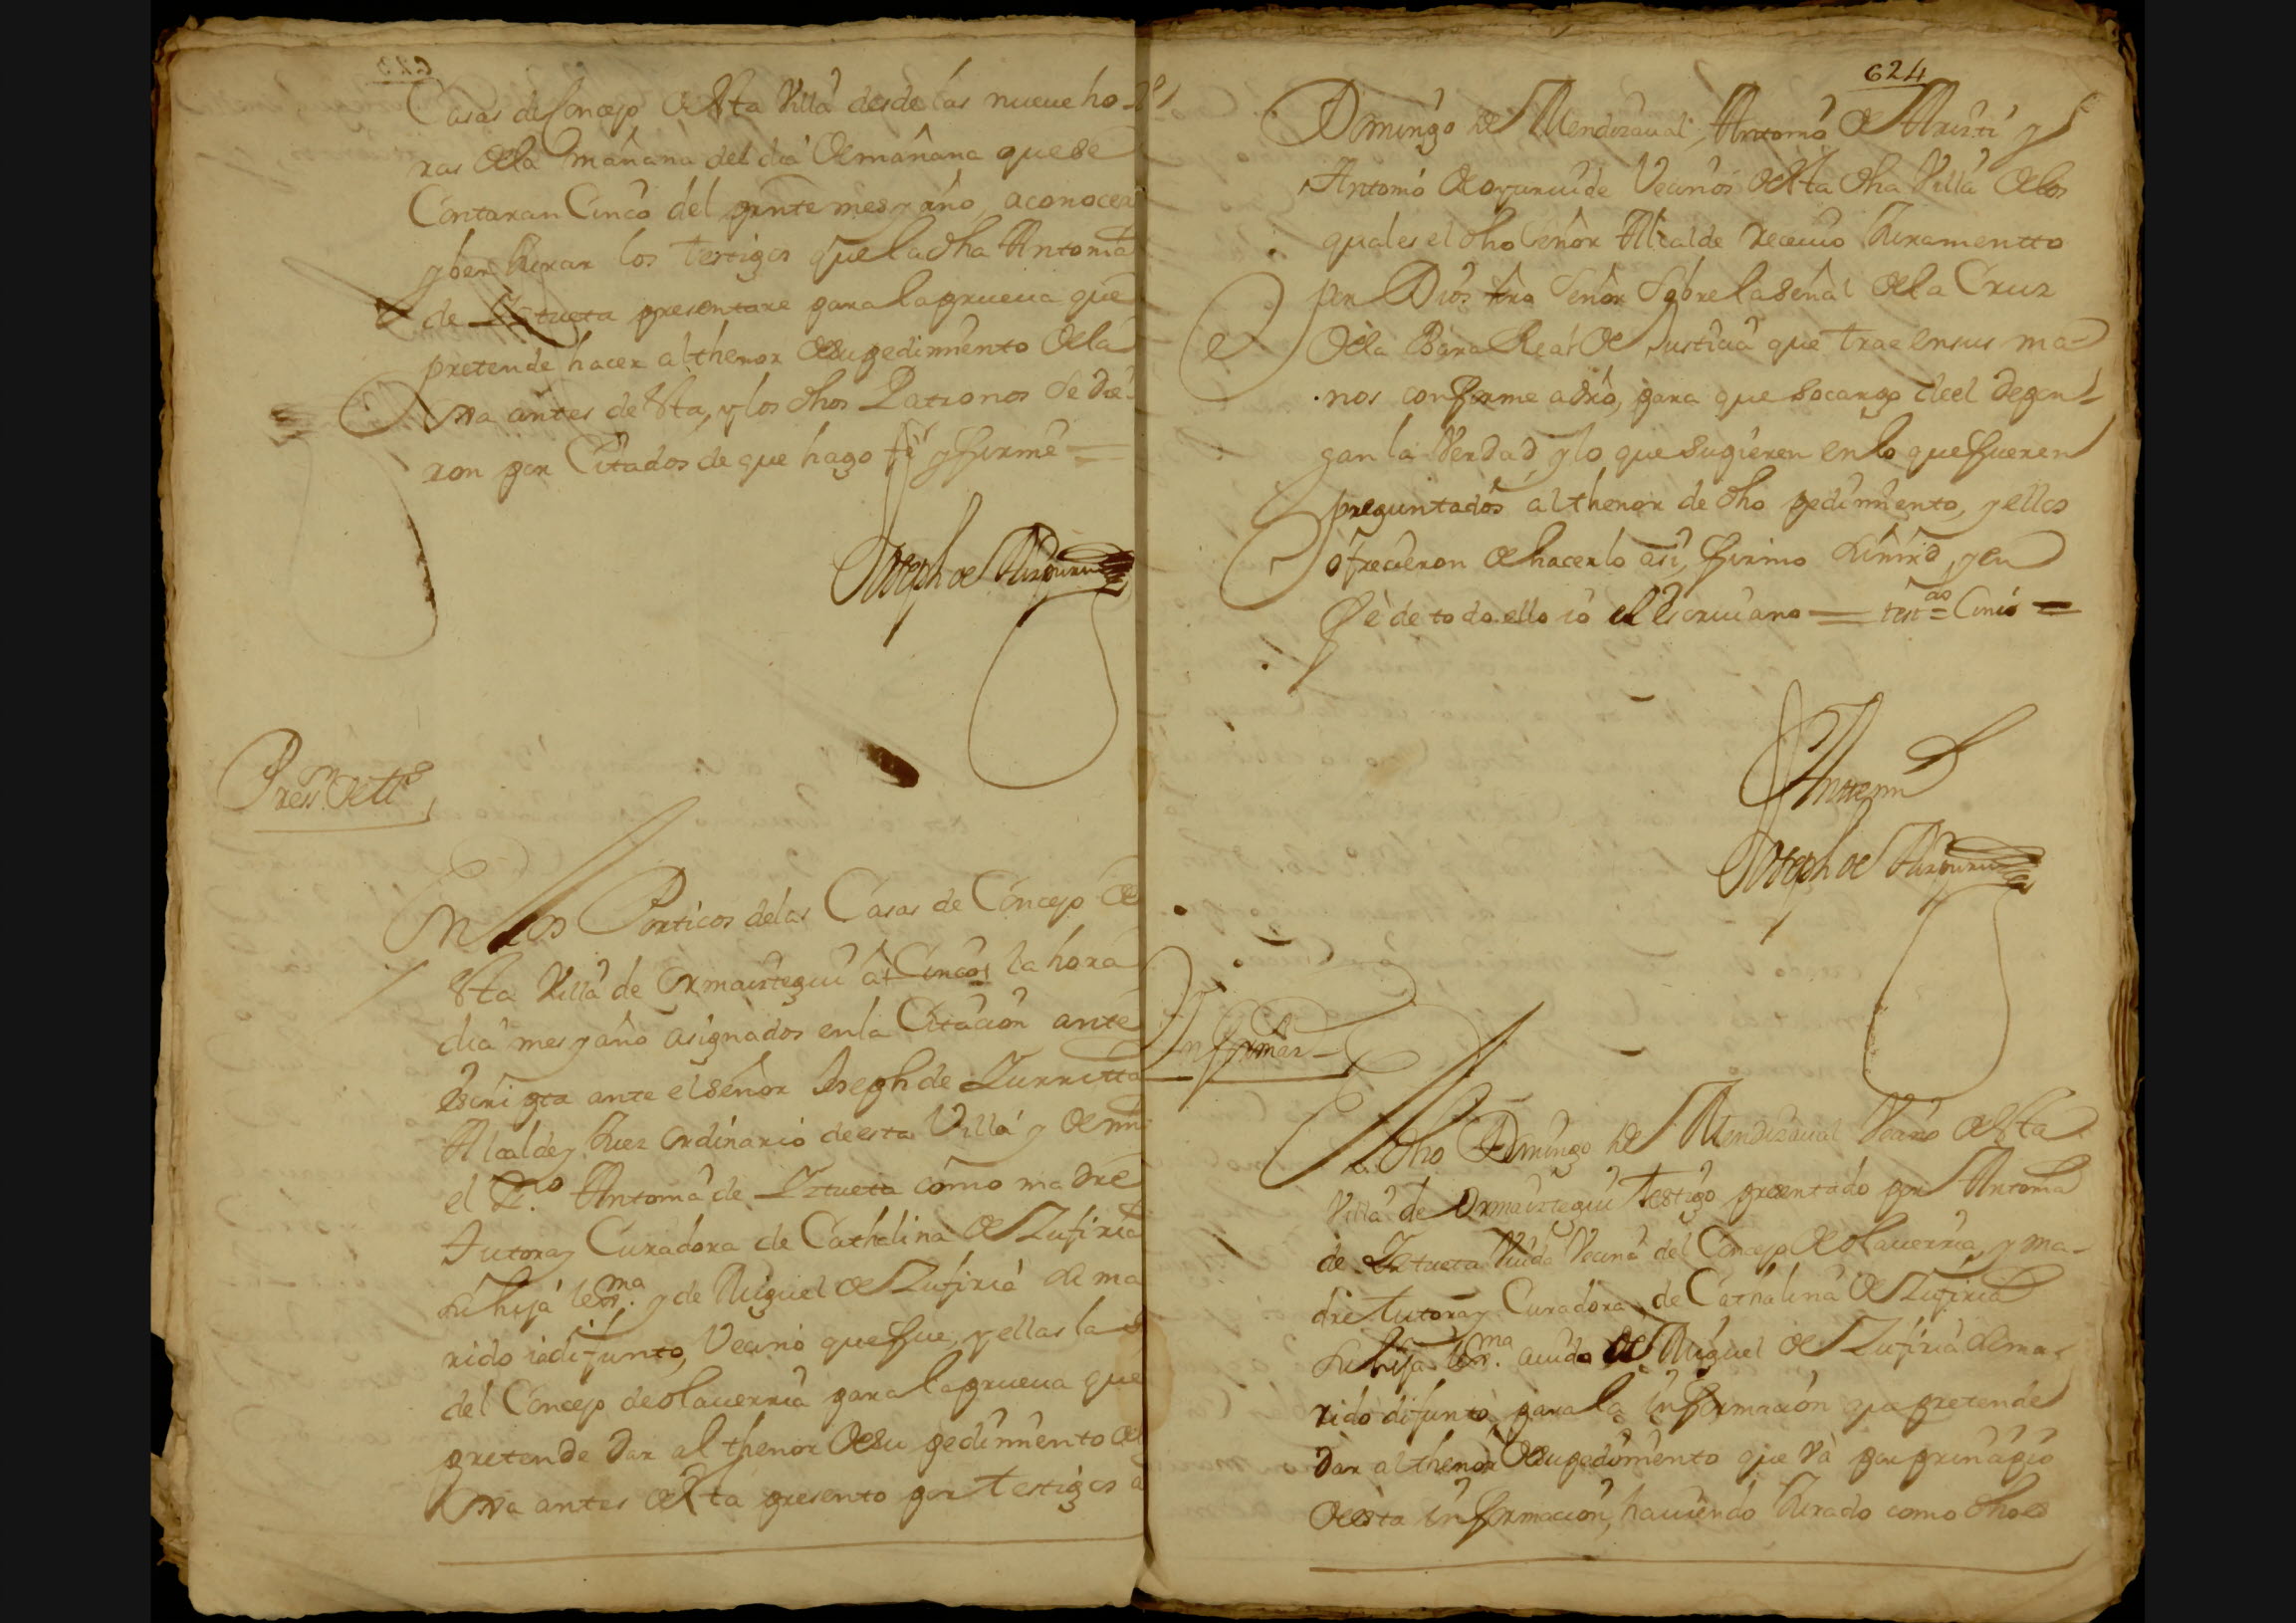 Casas de Concejo de Sta Villa desde las nueue ho-
ras de la mañana del dia de mañana que se
Contaran Cinco del prnte mes y año, a conocer
y ber Jurar los testigos que la dha Antonia
de Yztueta presentare para la prueua que
pretende hacer al thenor de su pedimento de la
ma antes de Sta, y los dhos Patronos se die-
ron por Citados de que hago fé y firmé =
Joseph de
Press.on de tts.o
En los Porticos de las Casas de Concejo de
Sta Villa de Ormaiztegui a los Cinco, la hora
dia mes y año asignados en la Citacion ante
escripta ante el señor Joseph de Zurrutta
Alcalde y Juez ordinario de esta Villa y de mi
el Ess.o Antonia de Yztueta como madre
Tutora y Curadora de Cathalina de Zufiria
su hija lexma. y de Miguel de Zufiria su ma
rido ia difunto, Vecino que fue, y ellas la s
del Concejo de olauerria para la prueua que
pretende dar al thenor de su pedimento de
ma antes de Sta presento por testigos a
624
Domingo de Mendizaual, Antonio de Aristi y
Antonio de oyaruide Vecinos de Sta dha Villa de los
quales el dho señor Alcalde receuio Juramentto
por Dios nro señor sobre la señal de la Cruz
de la Bara Real de Justicia que trae en sus ma-
nos conforme a dro, para que so cargo de el depon-
gan la Verdad y lo que supieren en lo que fueren
preguntados al thenor de dho pedimento, y ellos
ofrecieron de hacerlo asi, firmo su mrd, y en
fé de todo ello io el escriuano = testao = Cinco =
Antte mi
Joseph de
Informaz.on
El dho Domingo de Mendizaual Vecino de Sta
Villa de Ormaiztegui testigo presentado por Antonia
de Yztueta Viuda Vecina del Concejo de olauerria, y ma-
dre tutora y Curadora de Cathalina de Zufiria
su hija lexma. auida de Miguel de Zufiria su ma-
rido difunto, para la informacion que pretende
dar al thenor de su pedimento que va por principio
de esta informacion, hauiendo Jurado como dho es